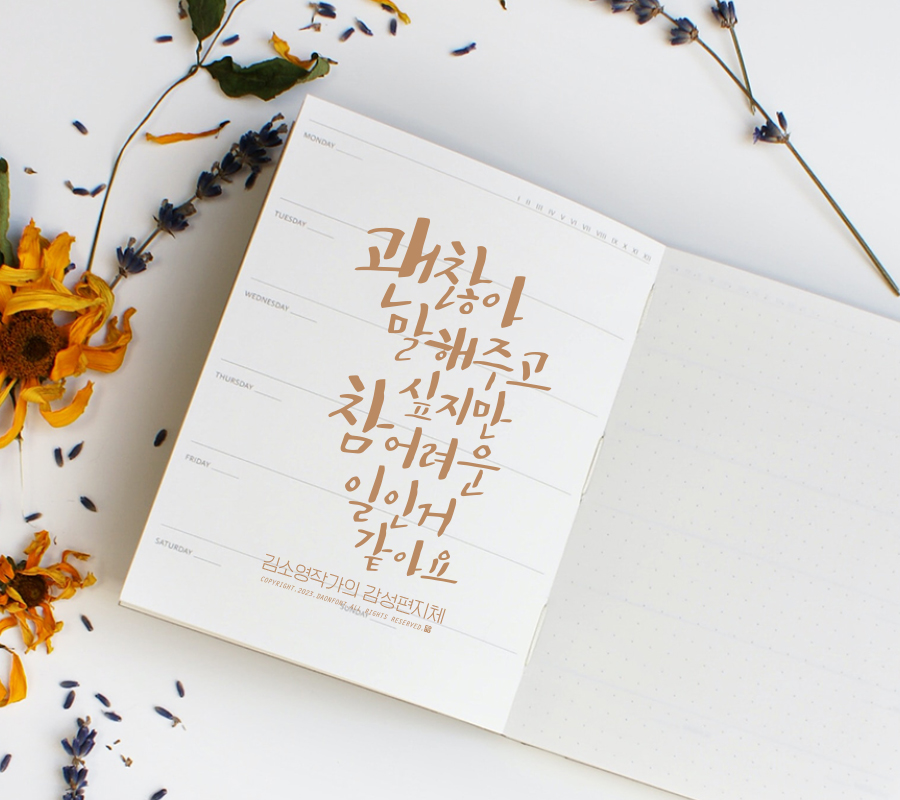 MONDAY
I II III IV V VI VII VIII IX X XI XII
TUESDAY
WEDNESDAY
THURSDAY
FRIDAY
SATURDAY
괜찮아
말해주고
싶지만
참 어려운
일인거
같아요
김소영작가의 감성편지체
COPYRIGHT.2023.DAONFONT ALL RIGHTS RESERVED.
SUNDAY